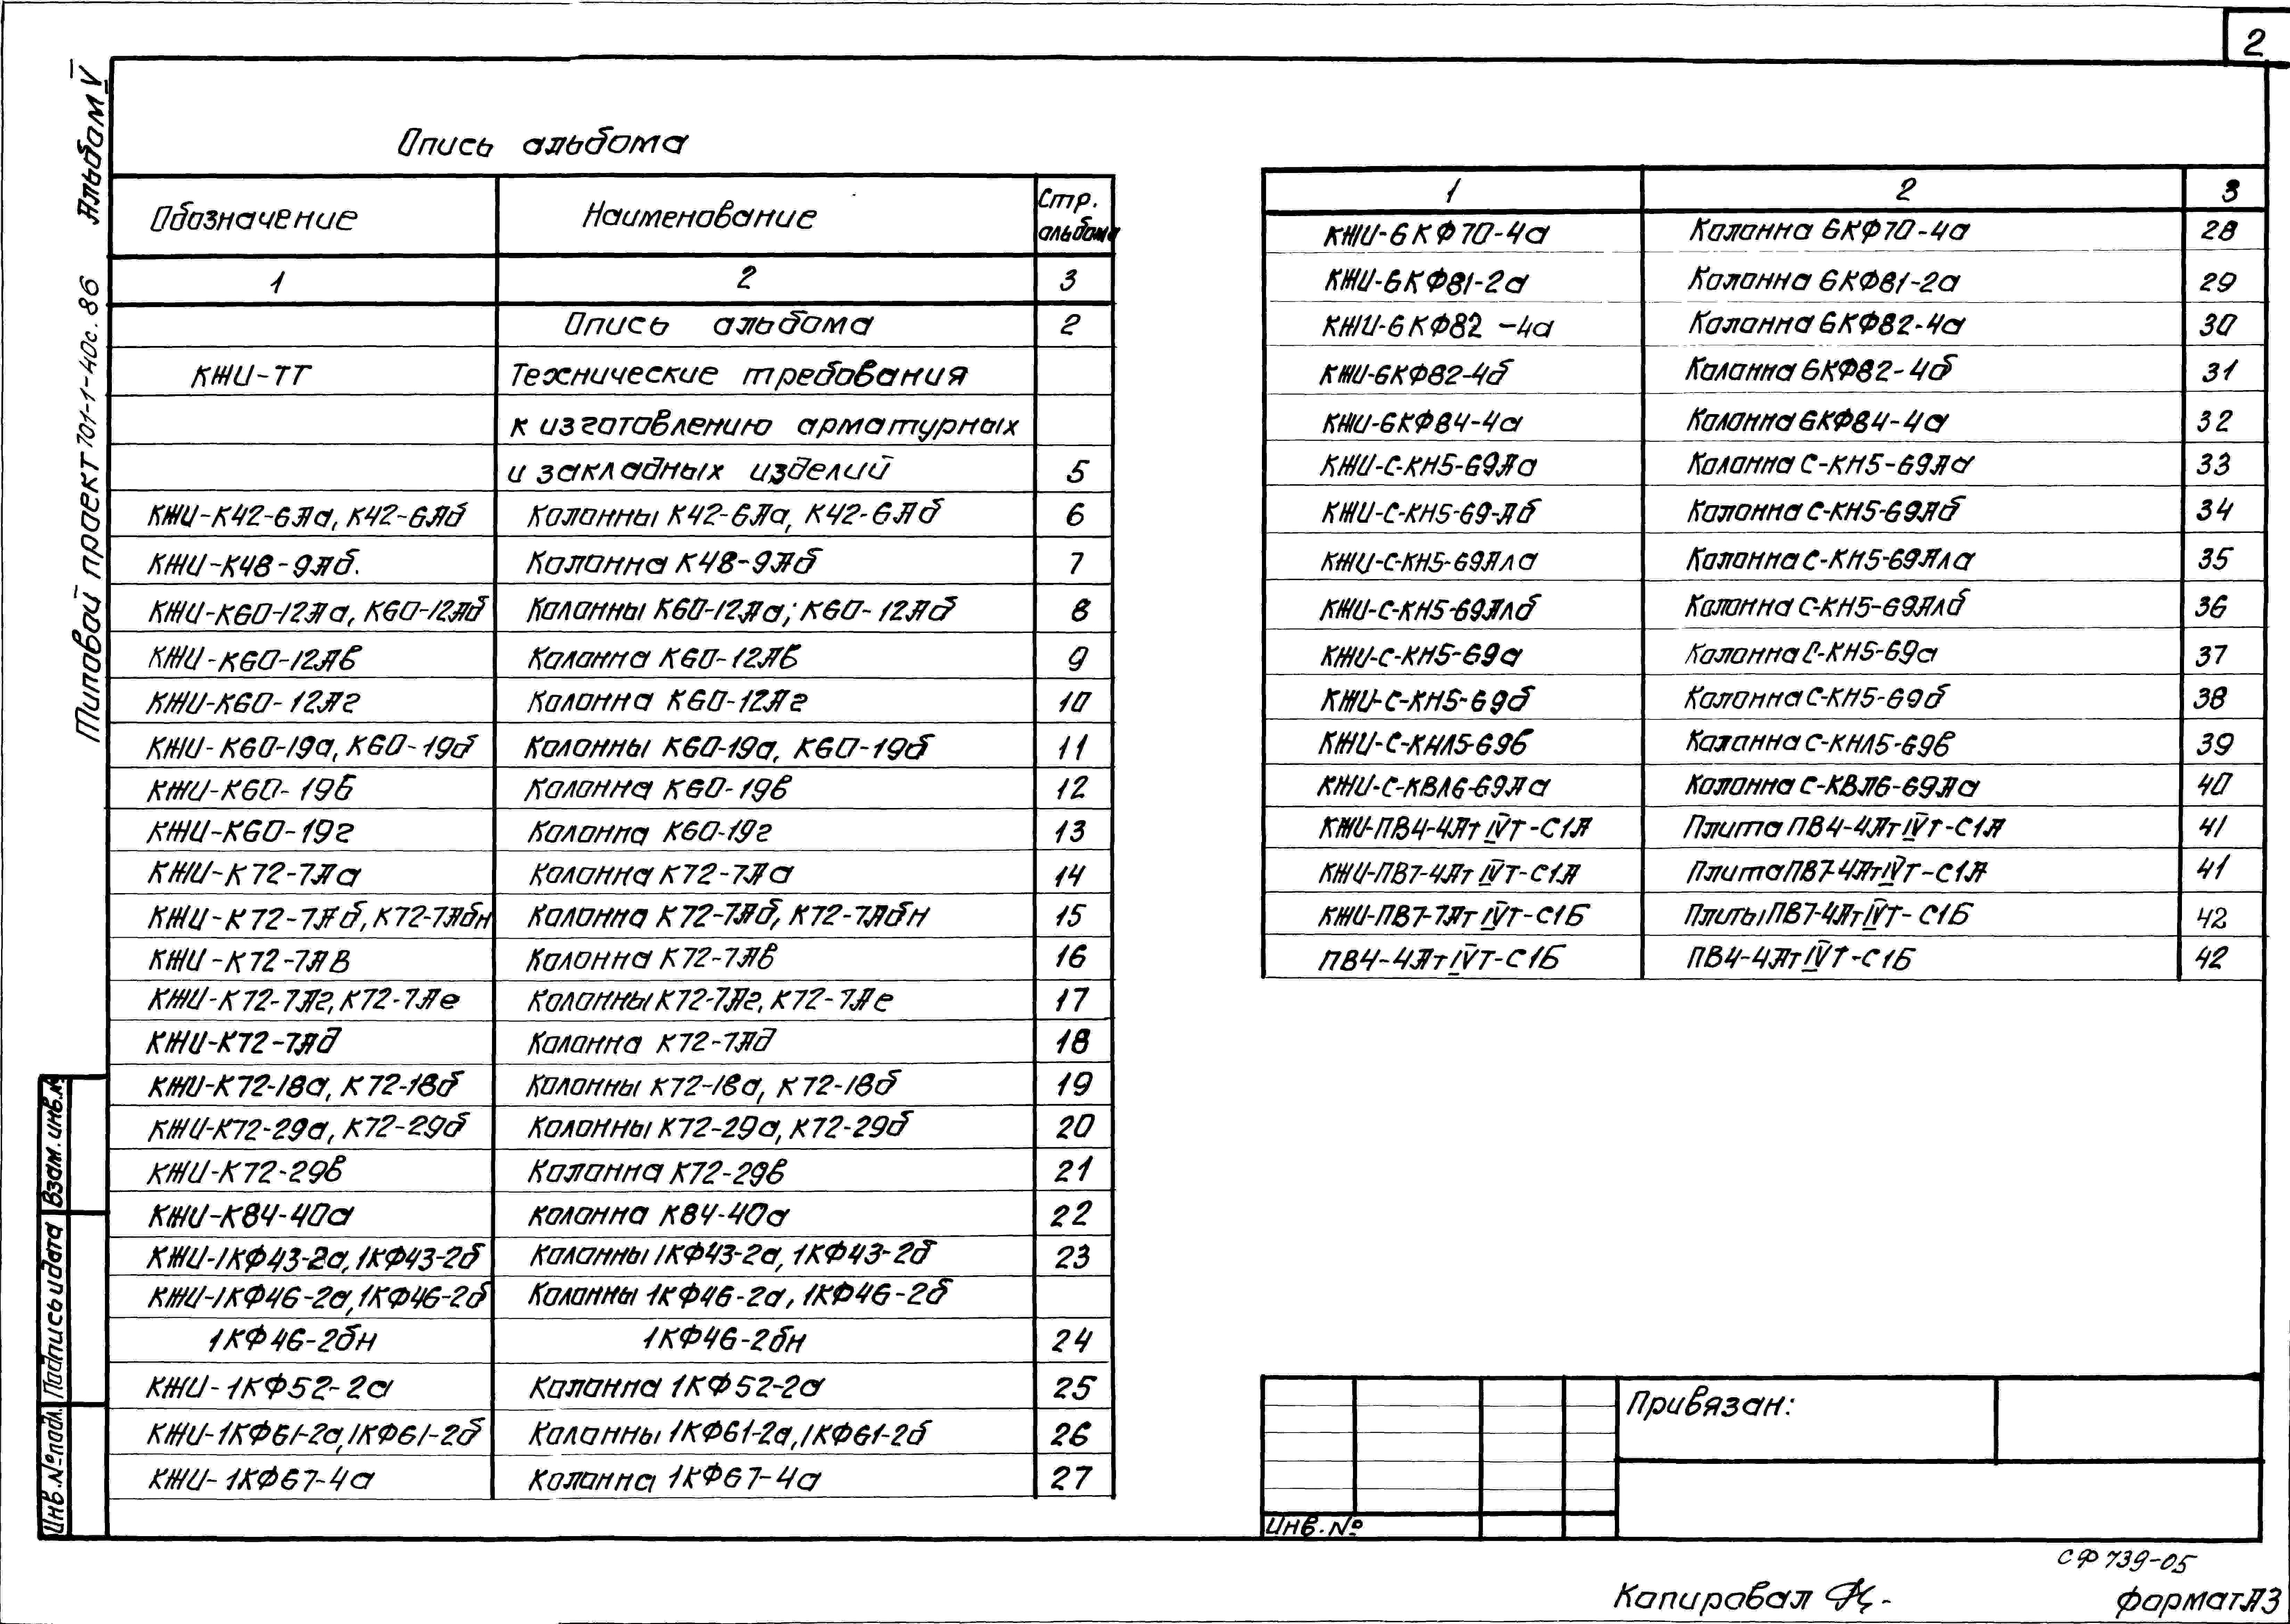 2
Типовой проект 701-1-40с.86 Альбом V
Опись альбома
Обозначение Наименование Стр. альбома
1 2 3
Опись альбома 2
КЖИ-ТТ Технические требования
к изготовлению арматурных
и закладных изделий 5
КЖИ-К42-6Аа, К42-6Аб Колонны К42-6Аа, К42-6Аб 6
КЖИ-К48-9Аб. Колонна К48-9Аб 7
КЖИ-К60-12Аа, К60-12Аб Колонны К60-12Аа; К60-12Аб 8
КЖИ-К60-12Ав Колонна К60-12Ав 9
КЖИ-К60-12Аг Колонна К60-12Аг 10
КЖИ-К60-19а, К60-19б Колонны К60-19а, К60-19б 11
КЖИ-К60-19в Колонна К60-19в 12
КЖИ-К60-19г Колонна К60-19г 13
КЖИ-К72-7Аа Колонна К72-7Аа 14
КЖИ-К72-7Аб, К72-7Абн Колонна К72-7Аб, К72-7Абн 15
КЖИ-К72-7АВ Колонна К72-7Ав 16
КЖИ-К72-7Аг, К72-7Ае Колонны К72-7Аг, К72-7Ае 17
КЖИ-К72-7Ад Колонна К72-7Ад 18
КЖИ-К72-18а, К72-18б Колонны К72-18а, К72-18б 19
КЖИ-К72-29а, К72-29б Колонны К72-29а, К72-29б 20
КЖИ-К72-29в Колонна К72-29в 21
КЖИ-К84-40а Колонна К84-40а 22
КЖИ-1КФ43-2а, 1КФ43-2б Колонны 1КФ43-2а, 1КФ43-2б 23
КЖИ-1КФ46-2а, 1КФ46-2б Колонны 1КФ46-2а, 1КФ46-2б
1КФ46-2бн 1КФ46-2бн 24
КЖИ-1КФ52-2а Колонна 1КФ52-2а 25
КЖИ-1КФ61-2а, 1КФ61-2б Колонны 1КФ61-2а, 1КФ61-2б 26
КЖИ-1КФ67-4а Колонна 1КФ67-4а 27
1 2 3
КЖИ-6КФ70-4а Колонна 6КФ70-4а 28
КЖИ-6КФ81-2а Колонна 6КФ81-2а 29
КЖИ-6КФ82-4а Колонна 6КФ82-4а 30
КЖИ-6КФ82-4б Колонна 6КФ82-4б 31
КЖИ-6КФ84-4а Колонна 6КФ84-4а 32
КЖИ-С-КН5-69Аа Колонна С-КН5-69Аа 33
КЖИ-С-КН5-69-Аб Колонна С-КН5-69Аб 34
КЖИ-С-КН5-69Ала Колонна С-КН5-69Ала 35
КЖИ-С-КН5-69Алб Колонна С-КН5-69Алб 36
КЖИ-С-КН5-69а Колонна С-КН5-69а 37
КЖИ-С-КН5-69б Колонна С-КН5-69б 38
КЖИ-С-КНЛ5-69в Колонна С-КНЛ5-69в 39
КЖИ-С-КВЛ6-69Аа Колонна С-КВЛ6-69Аа 40
КЖИ-ПВ4-4АтIVТ-С1А Плита ПВ4-4АтIVТ-С1А 41
КЖИ-ПВ7-4АтIVТ-С1А Плита ПВ7-4АтIVТ-С1А 41
КЖИ-ПВ7-7АтIVТ-С1Б Плиты ПВ7-4АтIVТ-С1Б 42
ПВ4-4АтIVТ-С1Б ПВ4-4АтIVТ-С1Б 42
Инв.№подл. Подпись и дата Взам.инв.№
Привязан:
Инв.№
СФ 739-05
Копировал
формат А3